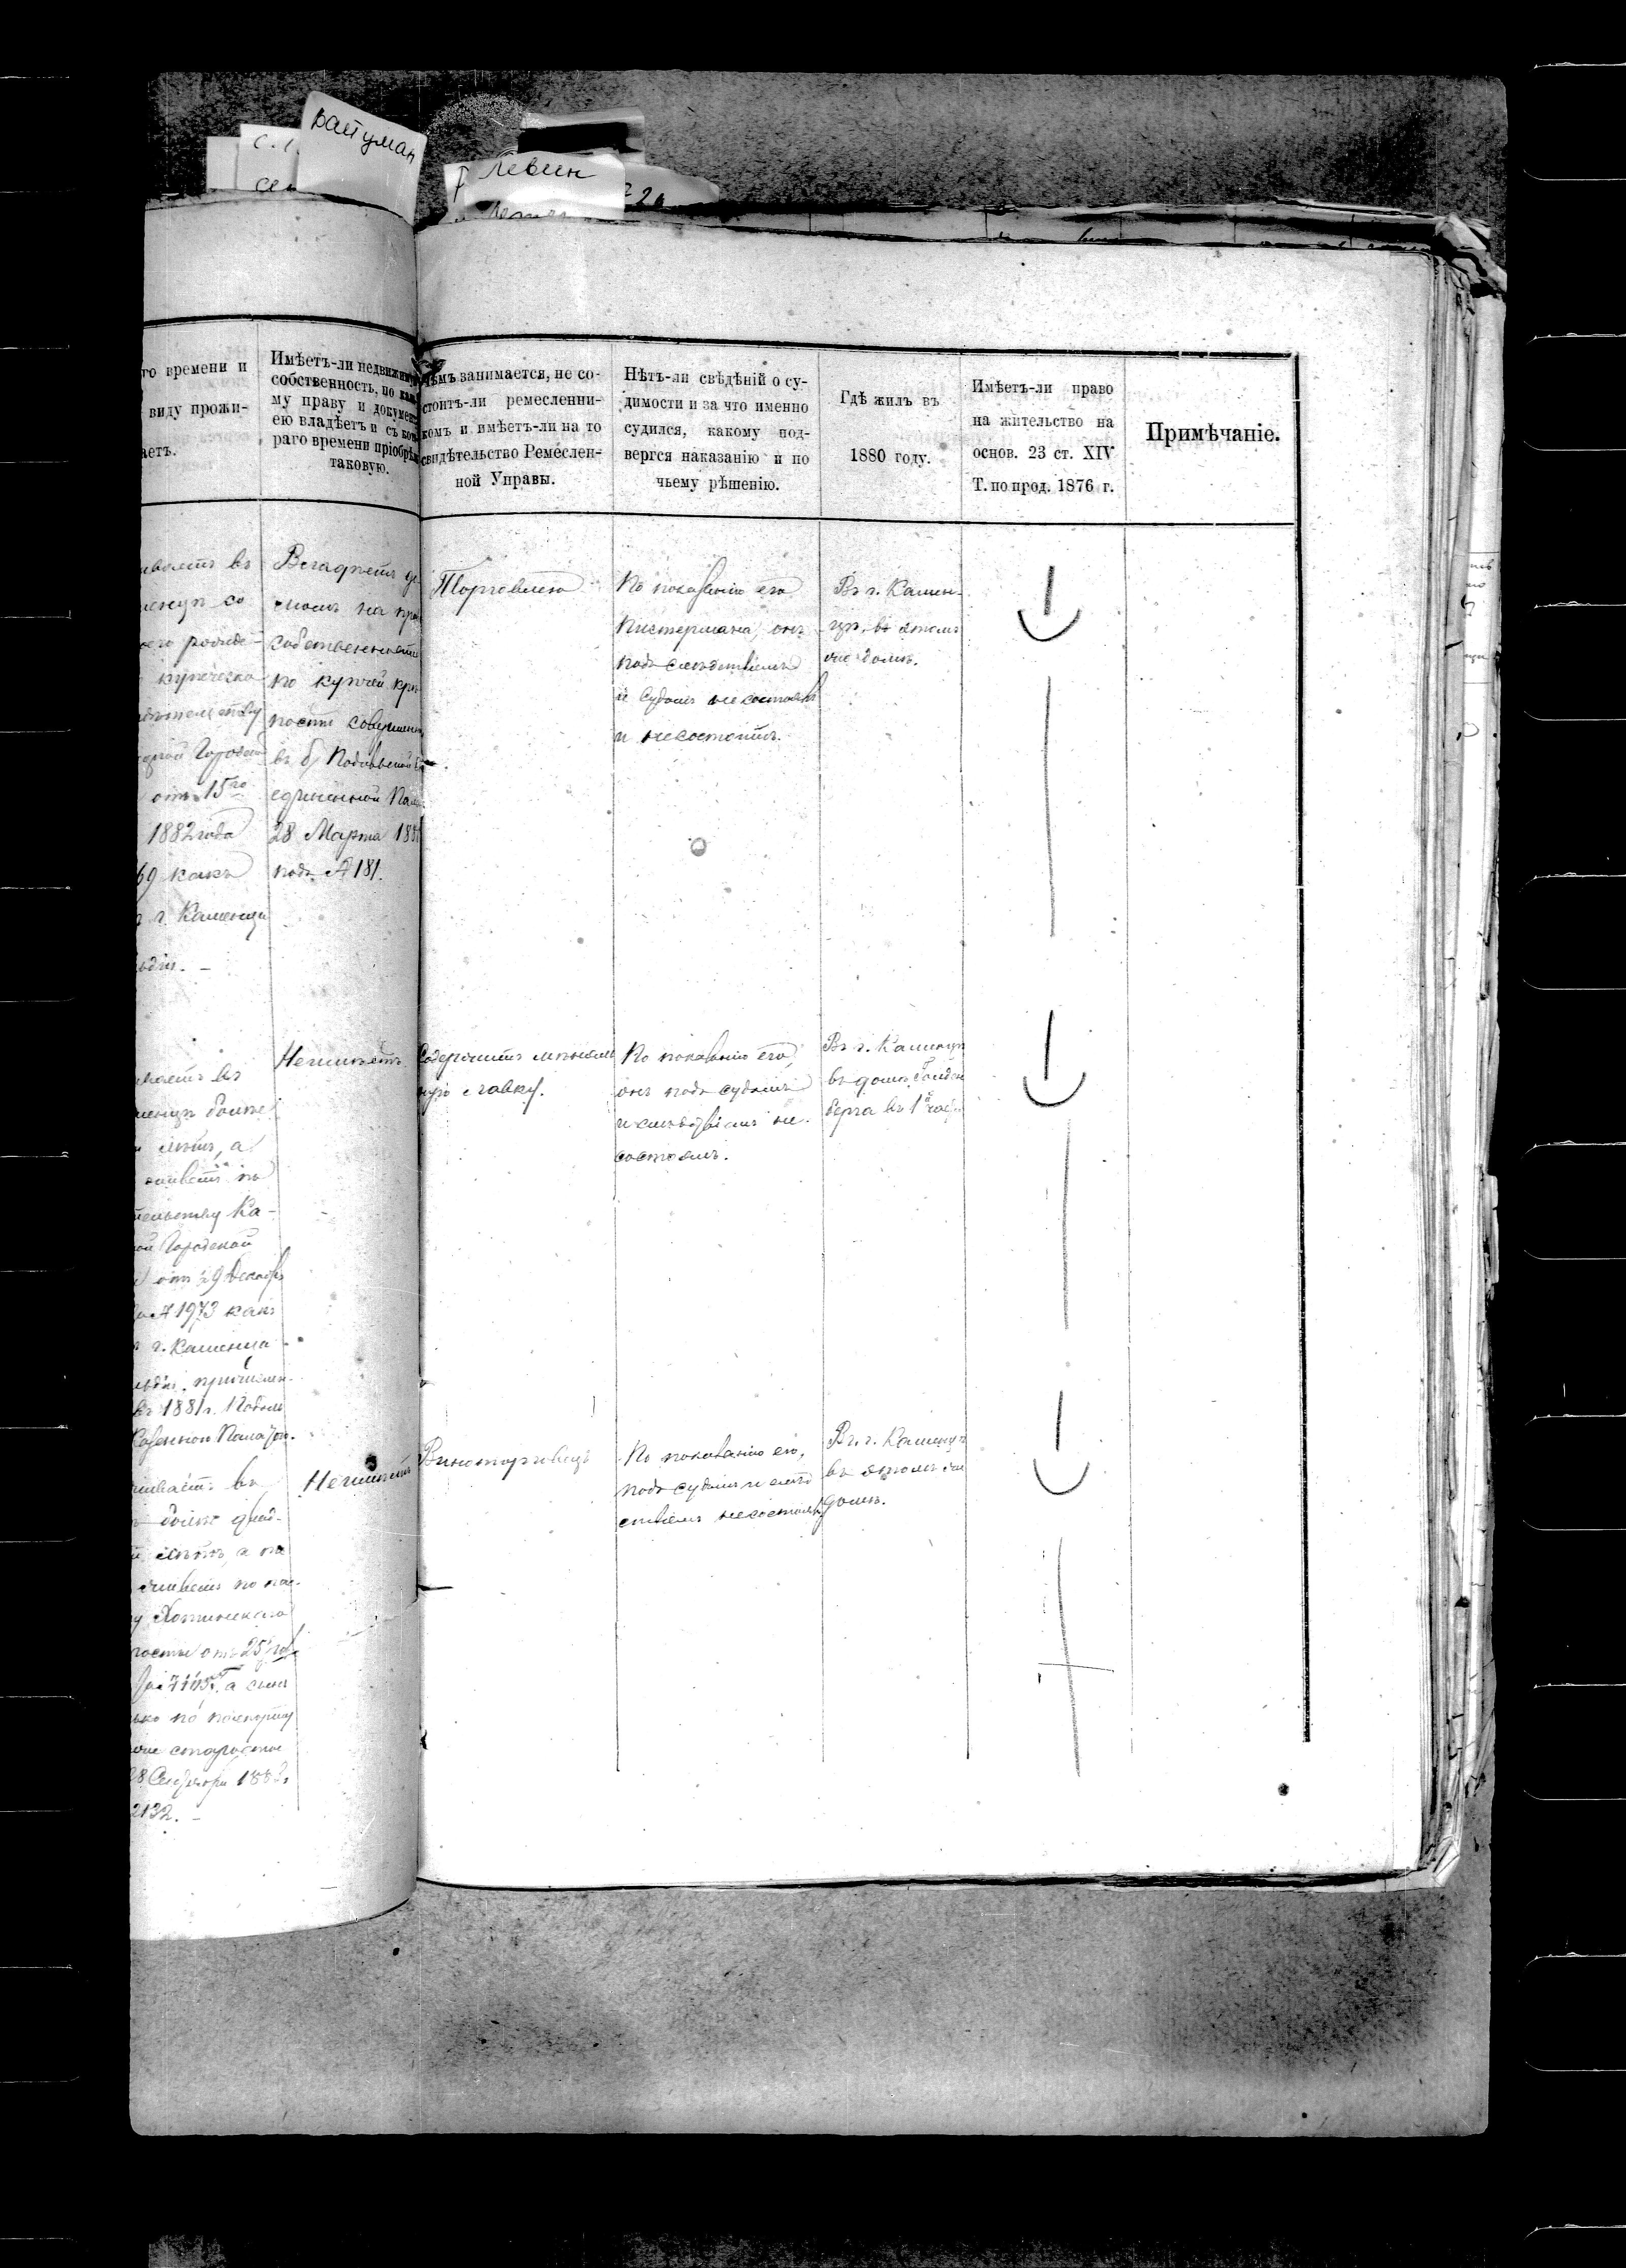 с.
Вайуман
Левин
го времени и
виду прожи-
аетъ.
Имѣетъ-ли недвижим
собственность, по как
му праву и докумен
ею владѣетъ и съ кот
раго времени пріобрѣл
таковую.
Чѣмъ занимается, не со-
стоитъ-ли ремесленни-
комъ и имѣетъ-ли на то
свидѣтельство Ремеслен-
ной Управы.
Нѣтъ-ли свѣдѣній о су-
димости и за что именно
судился, какому под-
вергся наказанію и по
чьему рѣшенію.
Гдѣ жилъ въ
1880 году.
Имѣетъ-ли право
на жительство на
основ. 23 ст. XIV
Т. по прод. 1876 г.
Примѣчаніе.
въ
со
купческо
Городской
отъ 15го
1882 года
69 какъ
г. Каменца
Владѣетъ до
момъ на пра
собственности
по купчей крѣ
пости совершен
въ б. Подольской
единенной Пала
28 Марта 188
подъ № 181.
Торговлею
По показанію его
Пистермана, онъ
подъ слѣдствіемъ
и судомъ не состоялъ
и не состоитъ.
Въ г. Камен-
цѣ, въ этомъ
же домѣ.
въ
болѣе
лѣтъ, а
по
Ка-
Городской
отъ 29 Декабр
№ 1973 какъ
г. Каменца
причислен-
въ 1881 г. Подоль
Казенной Палатой.
Неимѣетъ
Содержитъ мѣняль
ную лавку.
По показанію его,
онъ подъ судомъ
и слѣдствіемъ не
состоялъ.
Въ г. Каменцѣ
въ домѣ Гольден
берга въ 1й част
въ
болѣе двад-
лѣтъ, а по
по пас-
Хотинскаго
отъ 25
7145, а сынъ
по паспорту
же старосты
28 Сентября 1882
2132. –
Неимѣетъ
Виноторговецъ
По показанію его,
подъ судомъ и слѣд
ствіемъ не состоялъ
Въ г. Каменцѣ
въ этомъ же
домѣ.